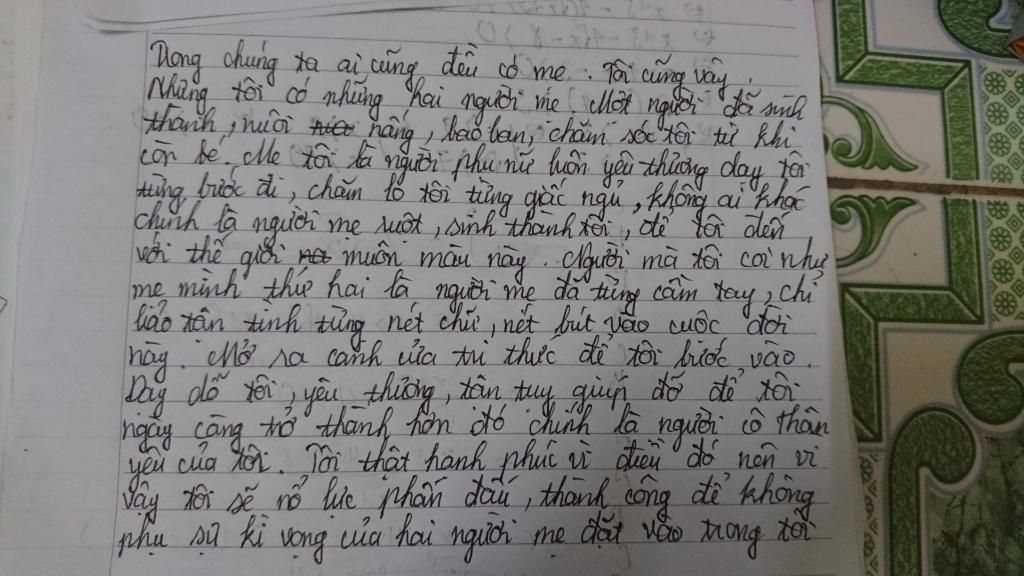 Trong chúng ta ai cũng đều có mẹ. Tôi cũng vậy.
Nhưng tôi có những hai người mẹ. Một người đã sinh
thành, nuôi nấng, bảo ban, chăm sóc tôi từ khi
còn bé. Mẹ tôi là người phụ nữ luôn yêu thương dạy tôi
từng bước đi, chăm lo tôi từng giấc ngủ, không ai khác
chính là người mẹ ruột, sinh thành tôi, để tôi đến
với thế giới muôn màu này. Người mà tôi coi như
mẹ mình thứ hai là người mẹ đã từng cầm tay, chỉ
bảo tận tình từng nét chữ, nét bút vào cuộc đời
này. Mở ra cánh cửa tri thức để tôi bước vào.
Dạy dỗ tôi, yêu thương, tận tụy giúp đỡ để tôi
ngày càng trở thành hơn đó chính là người cô thân
yêu của tôi. Tôi thật hạnh phúc vì điều đó nên vì
vậy tôi sẽ nổ lực phấn đấu, thành công để không
phụ sự kì vọng của hai người mẹ đặt vào trong tôi